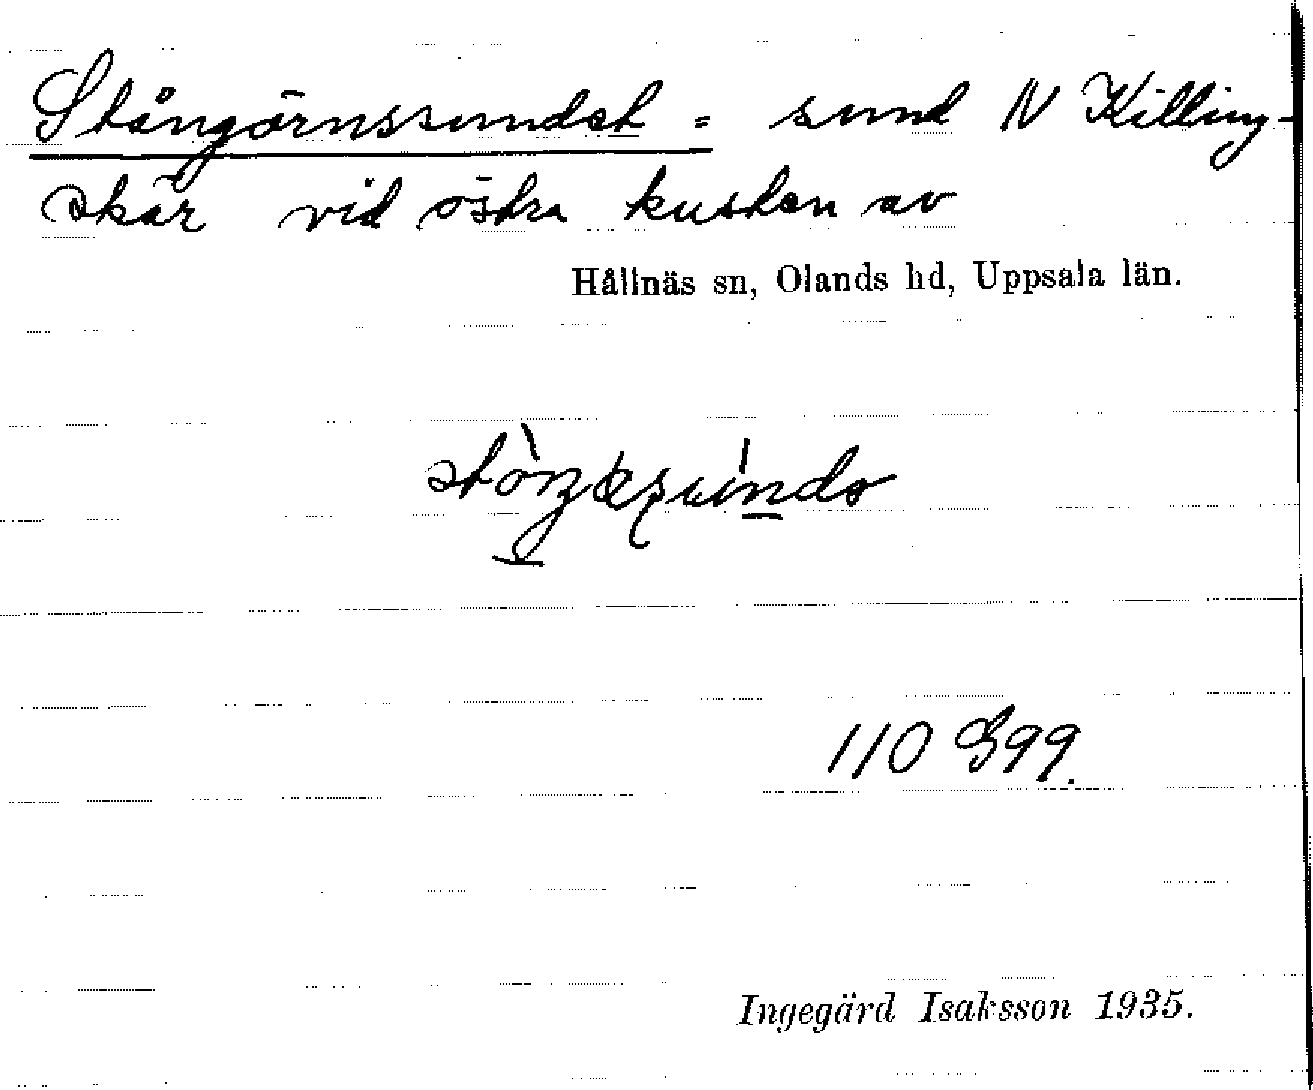 Stångörnssundet = sund N Killing-
skär vid östra kusten av
Hållnäs sn, Olands hd, Uppsala län.
110 G99.
Ingegärd Isaksson 1935.